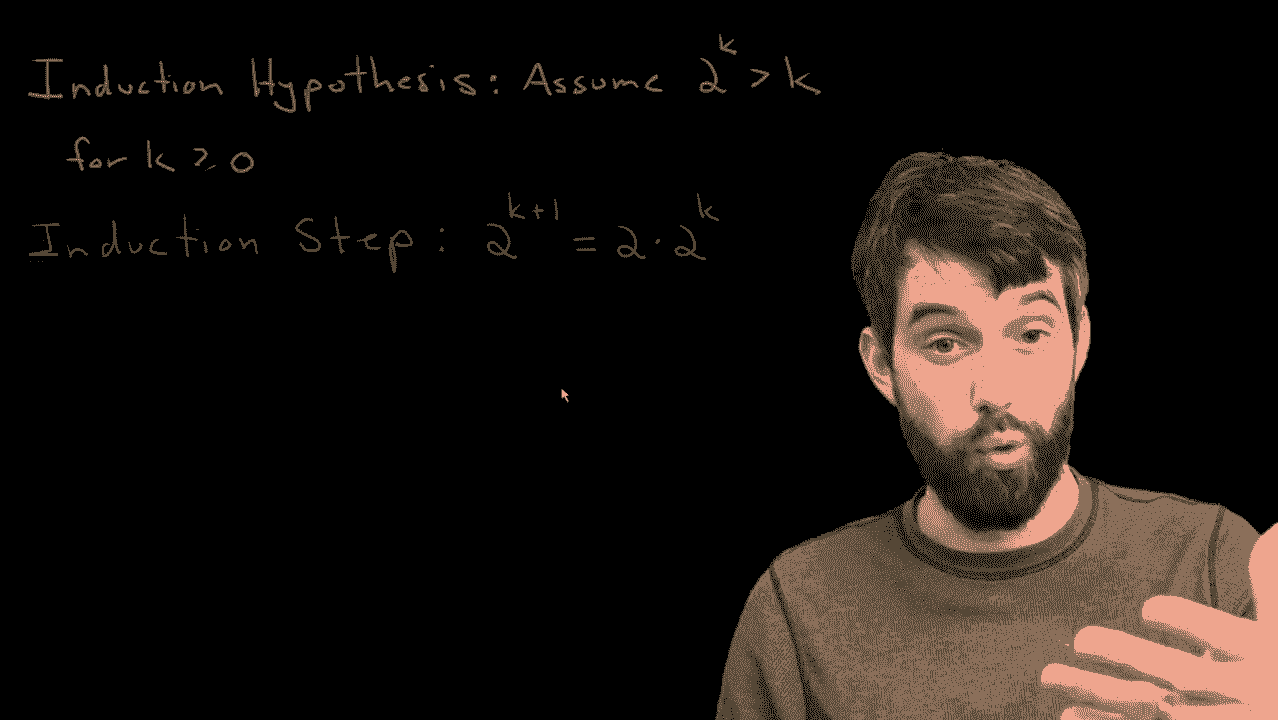 Induction Hypothesis: Assume 2^k > k
for k ≥ 0
Induction Step: 2^{k+1} = 2·2^k